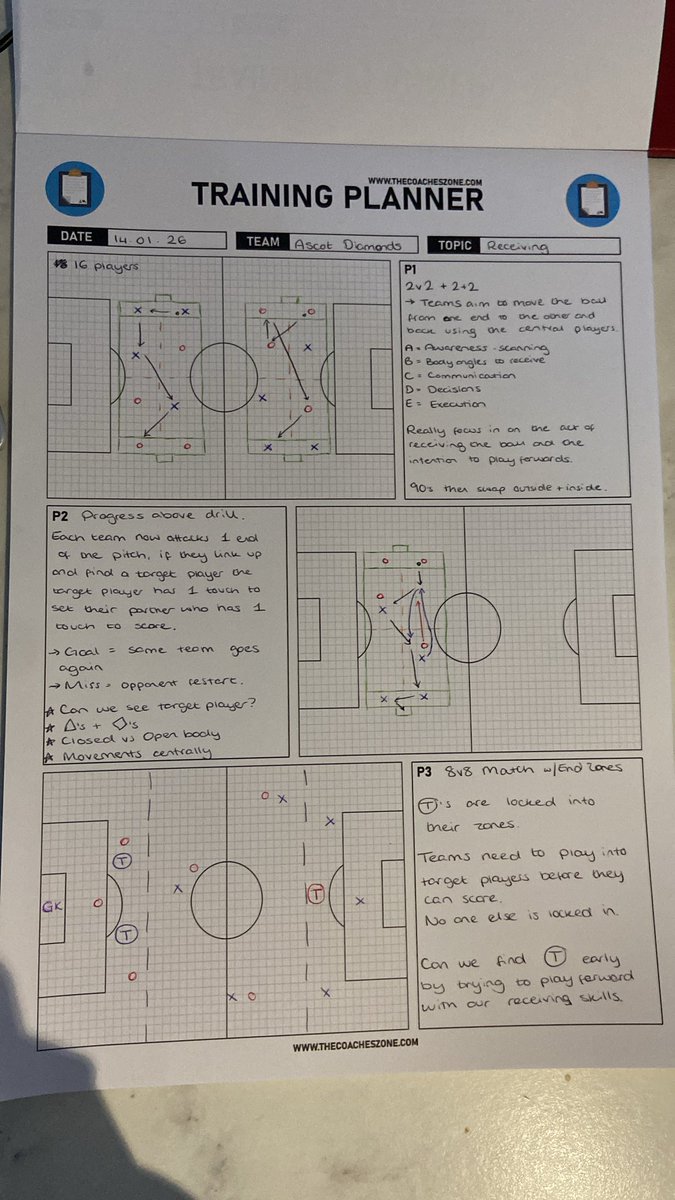 WWW.THECOACHESZONE.COM
TRAINING PLANNER
DATE 14.01.26 TEAM Ascot Diamonds TOPIC Receiving
16 players
P1
2v2 + 2+2
→ Teams aim to move the ball
from one end to the other and
back using the central players.
A = Awareness - scanning
B = Body angles to receive
C = Communication
D = Decisions
E = Execution
Really focus in on the act of
receiving the ball and the
intention to play forwards.
90's then swap outside + inside.
P2 Progress above drill.
Each team now attacks 1 end
of the pitch, if they link up
and find a target player the
target player has 1 touch to
set their partner who has 1
touch to score.
→ Goal = same team goes
again
→ Miss = opponent restart.
☆ Can we see target player?
☆ △'s + ◇'s
☆ Closed vs Open body
☆ Movements centrally
GK
T
T
T
P3 8v8 Match w/End Zones
Ⓣ's are locked into
their zones.
Teams need to play into
target players before they
can score.
No one else is locked in.
Can we find Ⓣ early
by trying to play forward
with our receiving skills.
WWW.THECOACHESZONE.COM